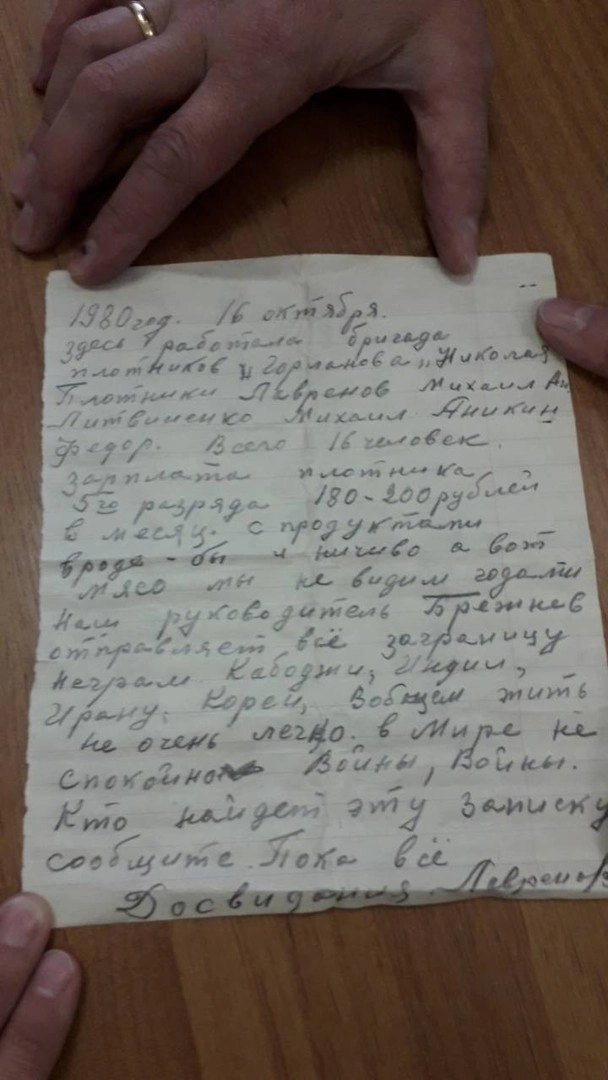 1980 год. 16 октября.
здесь работала бригада
плотников „Горланова„ Николая
Плотники Лавренов Михаил Ан.
Литвиненко Михаил Аникин
Федор. Всего 16 человек.
Зарплата плотника
5го разряда 180-200 рублей
в месяц. с продуктами
вроде-бы и ничиво а вот
мясо мы не видим годами
Наш руководитель Брежнев
отправляет всё заграницу
неграм Кабоджи, Индии,
Ирану. Кореи, Вобщем жить
не очень легко. в Мире не
спокойно Войны, Войны.
Кто найдет эту Записку
сообщите. Пока всё
Досвидания Лавренов